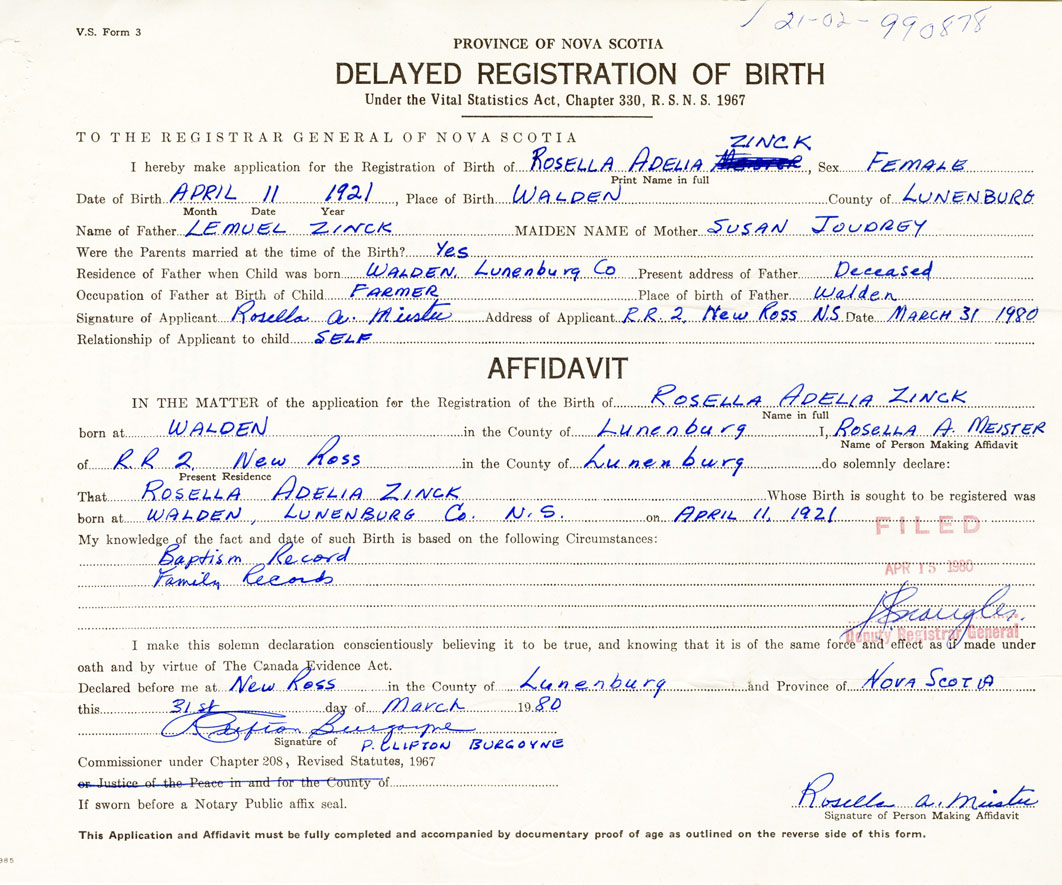 V.S. Form 3
21-02-990878
PROVINCE OF NOVA SCOTIA
DELAYED REGISTRATION OF BIRTH
Under the Vital Statistics Act, Chapter 330, R. S. N. S. 1967
TO THE REGISTRAR GENERAL OF NOVA SCOTIA
ZINCK
I hereby make application for the Registration of Birth of ROSELLA ADELIA MEISTER, Sex FEMALE
Print Name in full
Date of Birth APRIL 11 1921, Place of Birth WALDEN County of LUNENBURG
Month Date Year
Name of Father LEMUEL ZINCK MAIDEN NAME of Mother SUSAN JOUDREY
Were the Parents married at the time of the Birth? Yes
Residence of Father when Child was born WALDEN, Lunenburg Co Present address of Father Deceased
Occupation of Father at Birth of Child FARMER Place of birth of Father Walden
Signature of Applicant Rosella A. Meister Address of Applicant R.R. 2, New Ross N.S. Date MARCH 31 1980
Relationship of Applicant to child SELF
AFFIDAVIT
IN THE MATTER of the application for the Registration of the Birth of ROSELLA ADELIA ZINCK
Name in full
born at WALDEN in the County of Lunenburg I, ROSELLA A. MEISTER
Name of Person Making Affidavit
of R.R 2, New Ross in the County of Lunenburg do solemnly declare:
Present Residence
That ROSELLA ADELIA ZINCK Whose Birth is sought to be registered was
born at WALDEN, LUNENBURG Co. N.S. on APRIL 11, 1921
FILED
My knowledge of the fact and date of such Birth is based on the following Circumstances:
Baptism Record
APR 15 1980
Family Records
Deputy Registrar General
I make this solemn declaration conscientiously believing it to be true, and knowing that it is of the same force and effect as if made under
oath and by virtue of The Canada Evidence Act.
Declared before me at New Ross in the County of Lunenburg and Province of NOVA SCOTIA
this 31st day of March 1980
P Clifton Burgoyne
Signature of P. CLIFTON BURGOYNE
Commissioner under Chapter 208, Revised Statutes, 1967
or Justice of the Peace in and for the County of
If sworn before a Notary Public affix seal.
Rosella A. Meister
Signature of Person Making Affidavit
This Application and Affidavit must be fully completed and accompanied by documentary proof of age as outlined on the reverse side of this form.